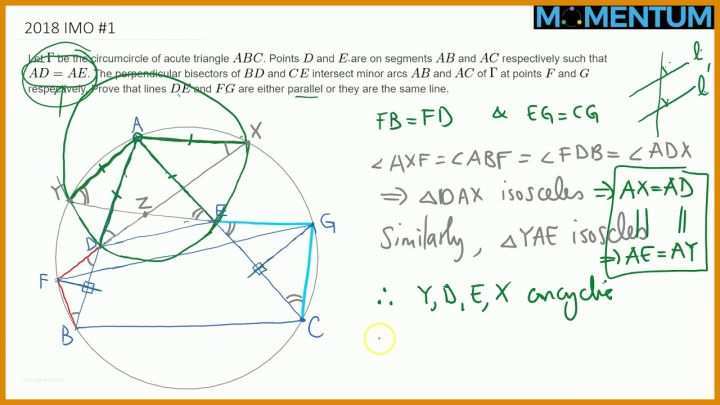 2018 IMO #1
MOMENTUM
Let Γ be the circumcircle of acute triangle ABC. Points D and E are on segments AB and AC respectively such that
AD = AE. The perpendicular bisectors of BD and CE intersect minor arcs AB and AC of Γ at points F and G
respectively. Prove that lines DE and FG are either parallel or they are the same line.
l
l'
FB = FD & EG = CG
∠AXF = ∠ABF = ∠FDB = ∠ADX
⇒ △DAX isosceles ⇒ AX = AD
Similarly, △YAE isosceles ⇒ AE = AY
∴ Y, D, E, X concyclic
A
X
Y
Z
E
G
D
F
B
C